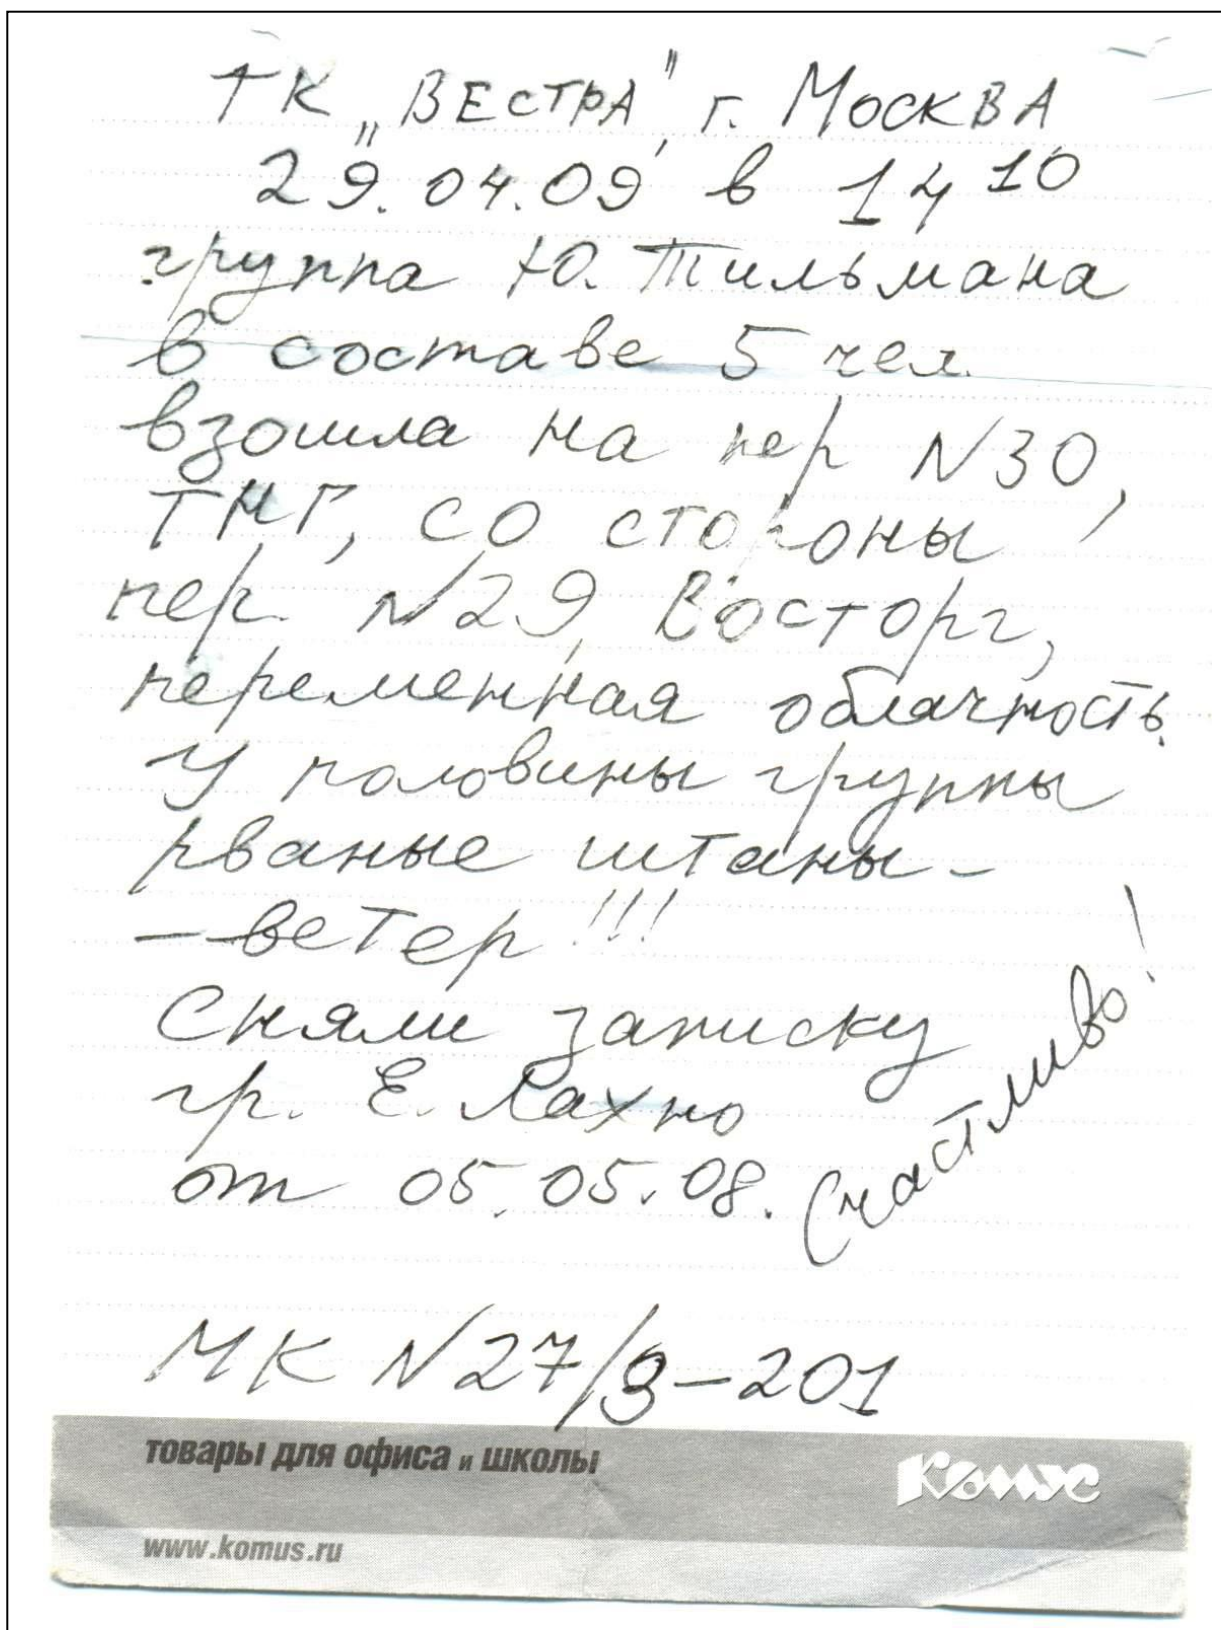 ТК „ВЕСТРА", г. МОСКВА
29.04.09 в 14 10
группа Ю. Тильмана
в составе 5 чел.
взошла на пер N30,
ТНГ, со стороны
пер. N29, Восторг,
переменная облачность.
У половины группы
рваные штаны -
- ветер !!!
Сняли записку
гр. Е. Лахно
от 05.05.08.
Счастливо!
МК N27/3-201
товары для офиса и школы
Комус
www.komus.ru